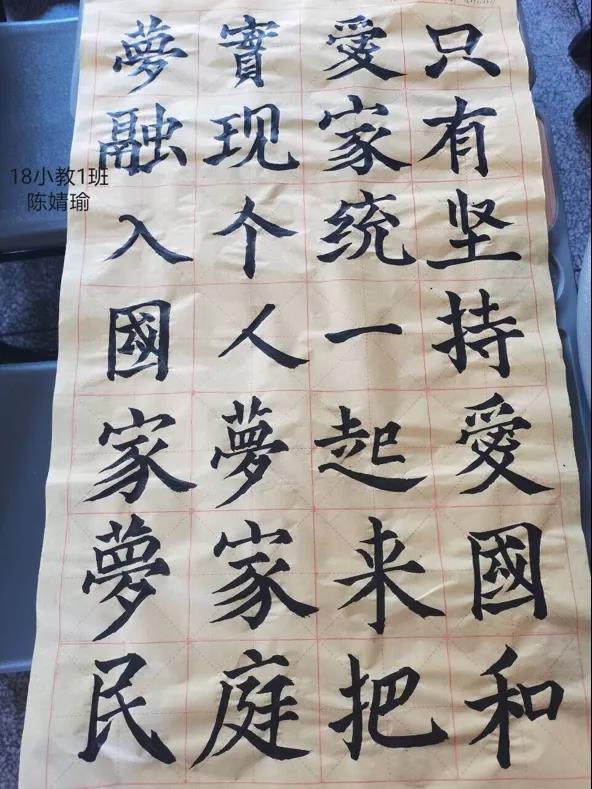 只有坚持愛國和
愛家统一起来把
實现个人夢家庭
夢融入國家夢民
18小教1班
陈婧瑜